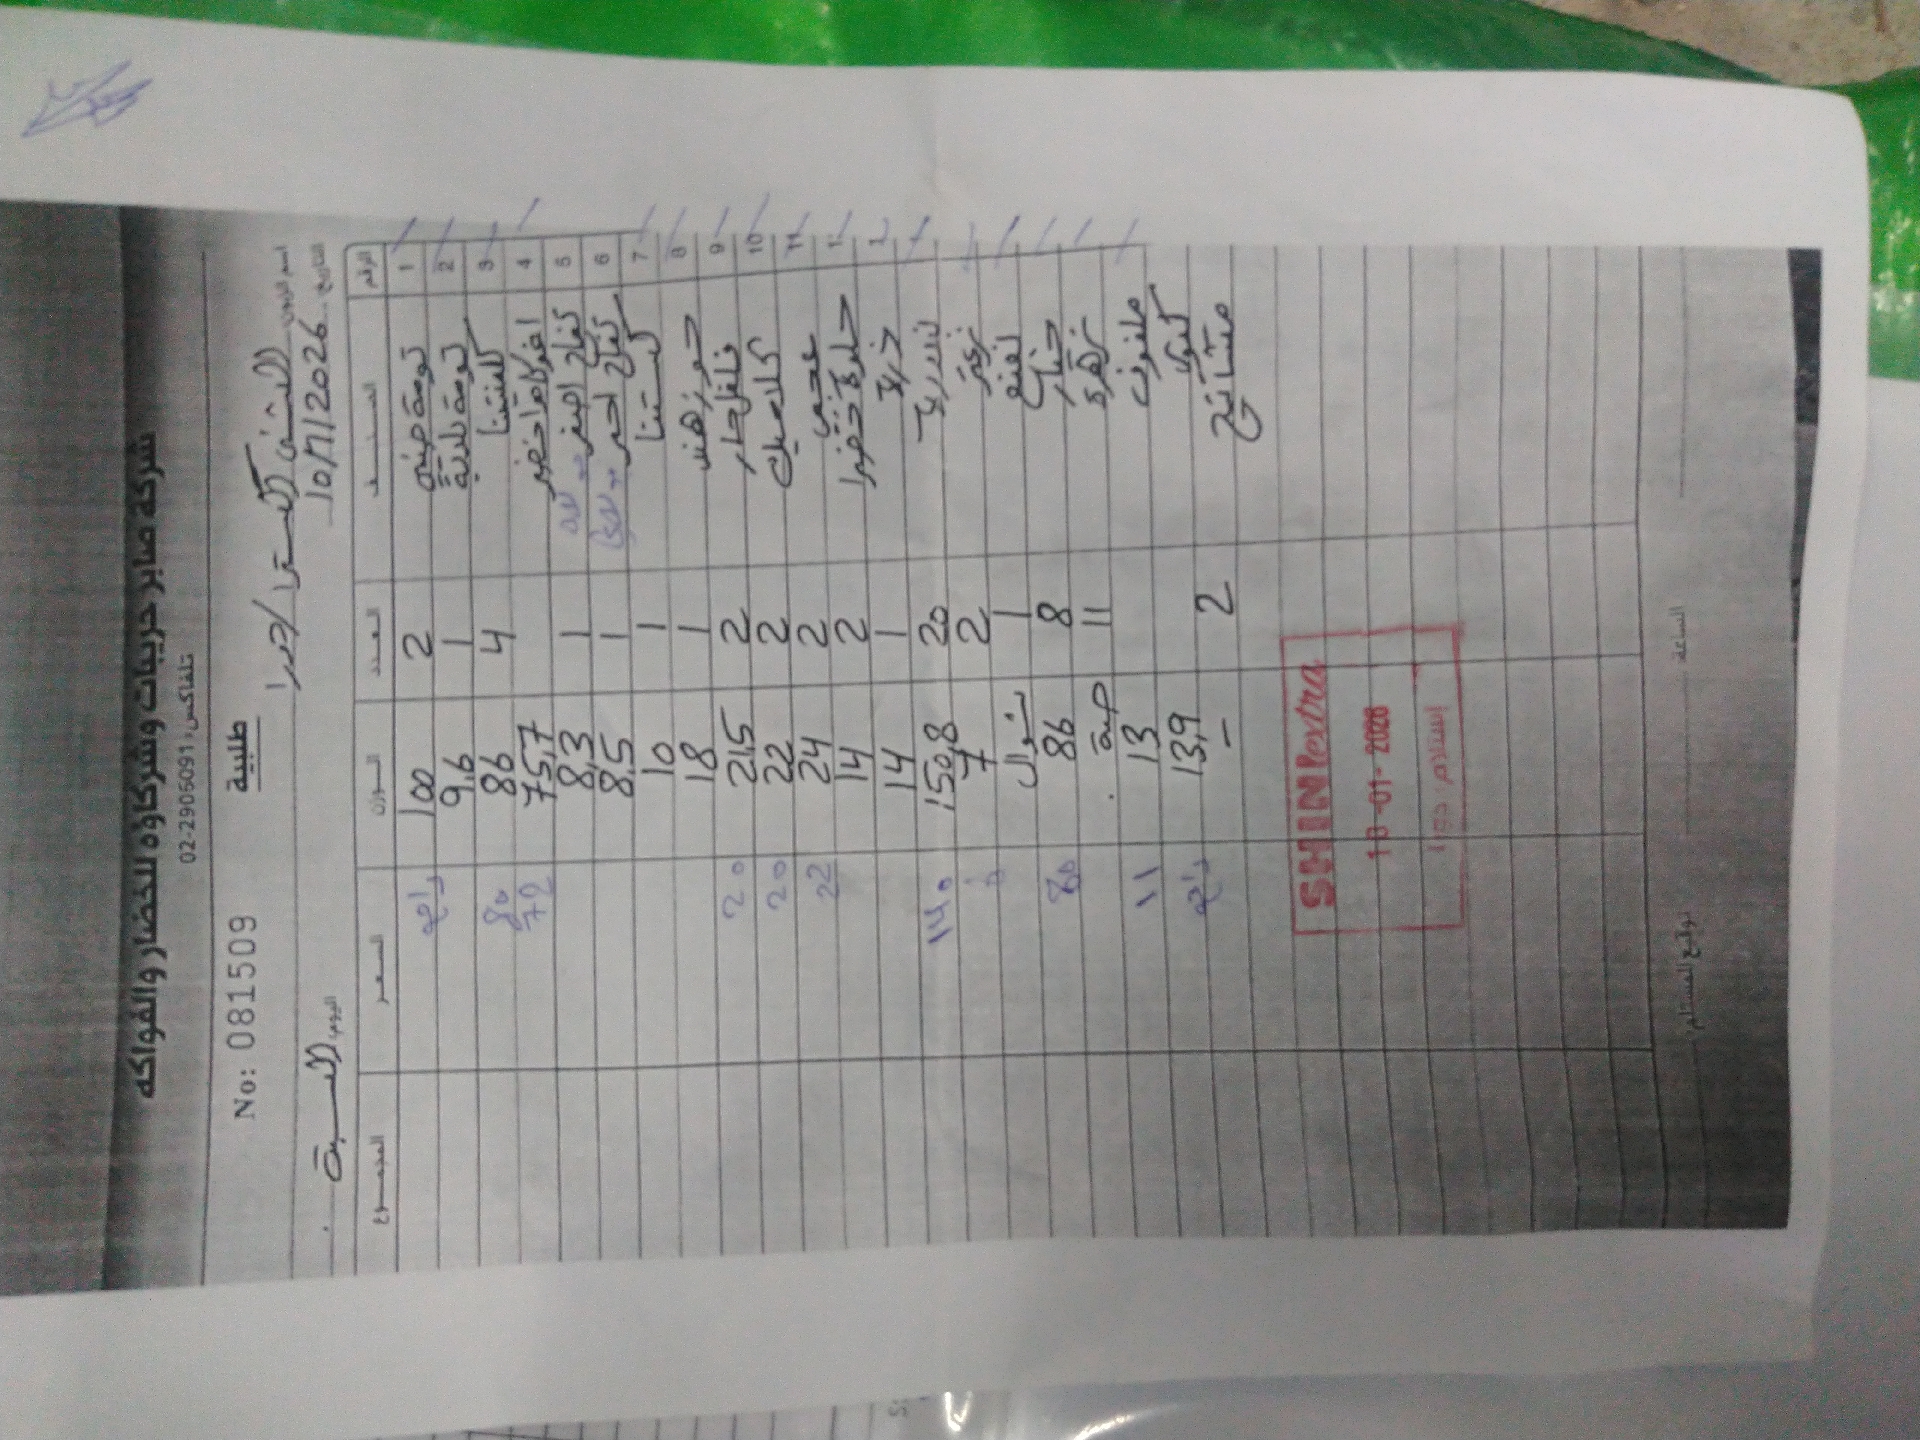 شركة صابر حريبات وشركاؤه للخضار والفواكه
تلفاكس: 02-2905091
طلبية
No: 081509
اسم الزبون: الشني اكسترا / دورا
التاريخ: 10/1/2026 اليوم: السبت
الرقم الصنف العدد الوزن السعر المجموع
1 ثومة صيني 2 100 راجع
2 ثومة بلدية 1 9,6
3 كلمنتينا 4 86 80
4 افوكادو اخضر 75,7 72
5 تفاح اصفر 1 8,3
6 تفاح احمر 1 8,5
7 كستنا 1 10
8 جوز هند 1 18
9 فلفل حار 2 21,5 20
10 كلاصيك 2 22 20
11 عجمي 2 24 22
حلوة خضرا 2 14
1 14
20 150,8 140
2 7
نعنع 1
خيار 8 86 80
زهرة 11 حبة
ملفوف 13 11
كيوي 13,9 راجع
2 -
SHINI extra
-01- 2026
استلام دورا
توقيع المستلم: الساعة